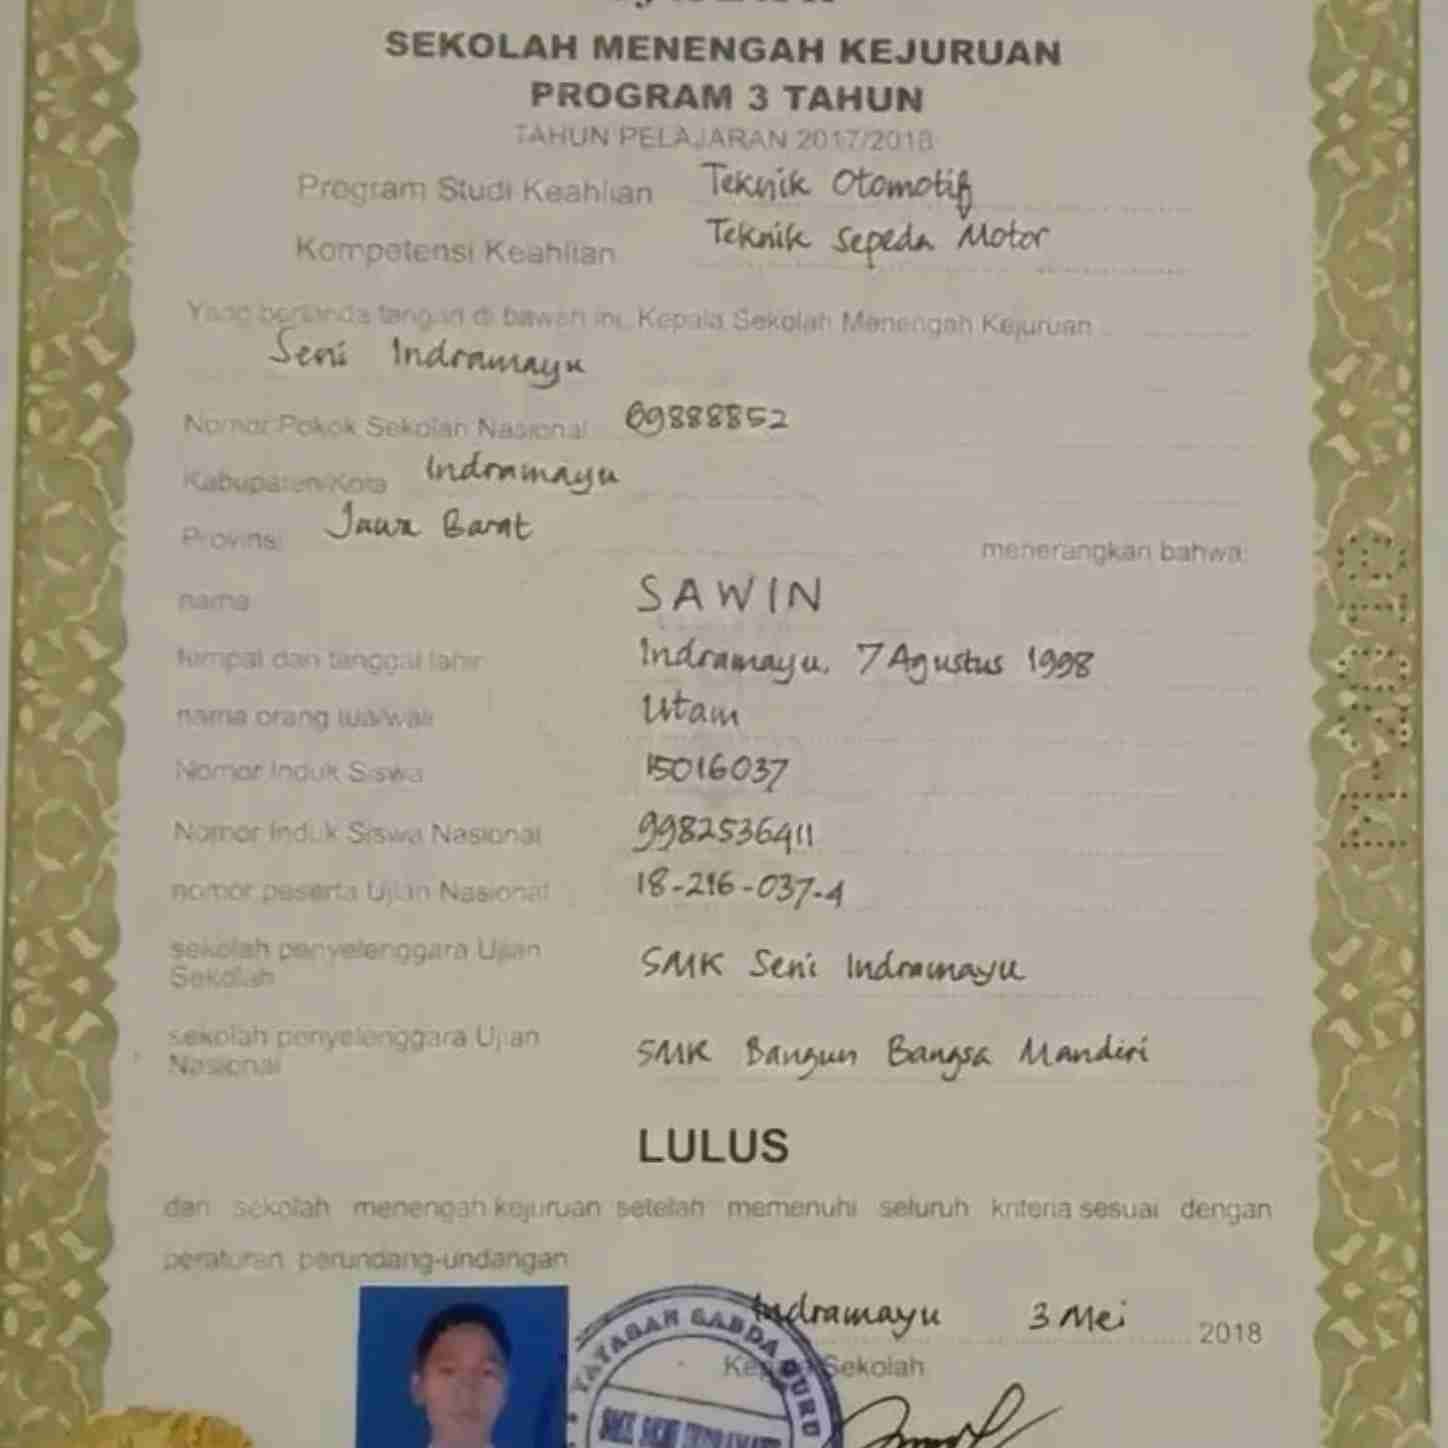 SEKOLAH MENENGAH KEJURUAN
PROGRAM 3 TAHUN
TAHUN PELAJARAN 2017/2018
Program Studi Keahlian Teknik Otomotif
Kompetensi Keahlian Teknik Sepeda Motor
Yang bertanda tangan di bawah ini, Kepala Sekolah Menengah Kejuruan
Seni Indramayu
Nomor Pokok Sekolah Nasional 69888852
Kabupaten/Kota Indramayu
Provinsi Jawa Barat menerangkan bahwa:
nama SAWIN
tempat dan tanggal lahir Indramayu, 7 Agustus 1998
nama orang tua/wali Utam
Nomor Induk Siswa 15016037
Nomor Induk Siswa Nasional 9982536411
nomor peserta Ujian Nasional 18-216-037-4
sekolah penyelenggara Ujian
Sekolah SMK Seni Indramayu
sekolah penyelenggara Ujian
Nasional SMK Bangun Bangsa Mandiri
LULUS
dari sekolah menengah kejuruan setelah memenuhi seluruh kriteria sesuai dengan
peraturan perundang-undangan
Indramayu 3 Mei 2018
Kepala Sekolah
YAYASAN SABDA GURU
SMK SENI INDRAMAYU